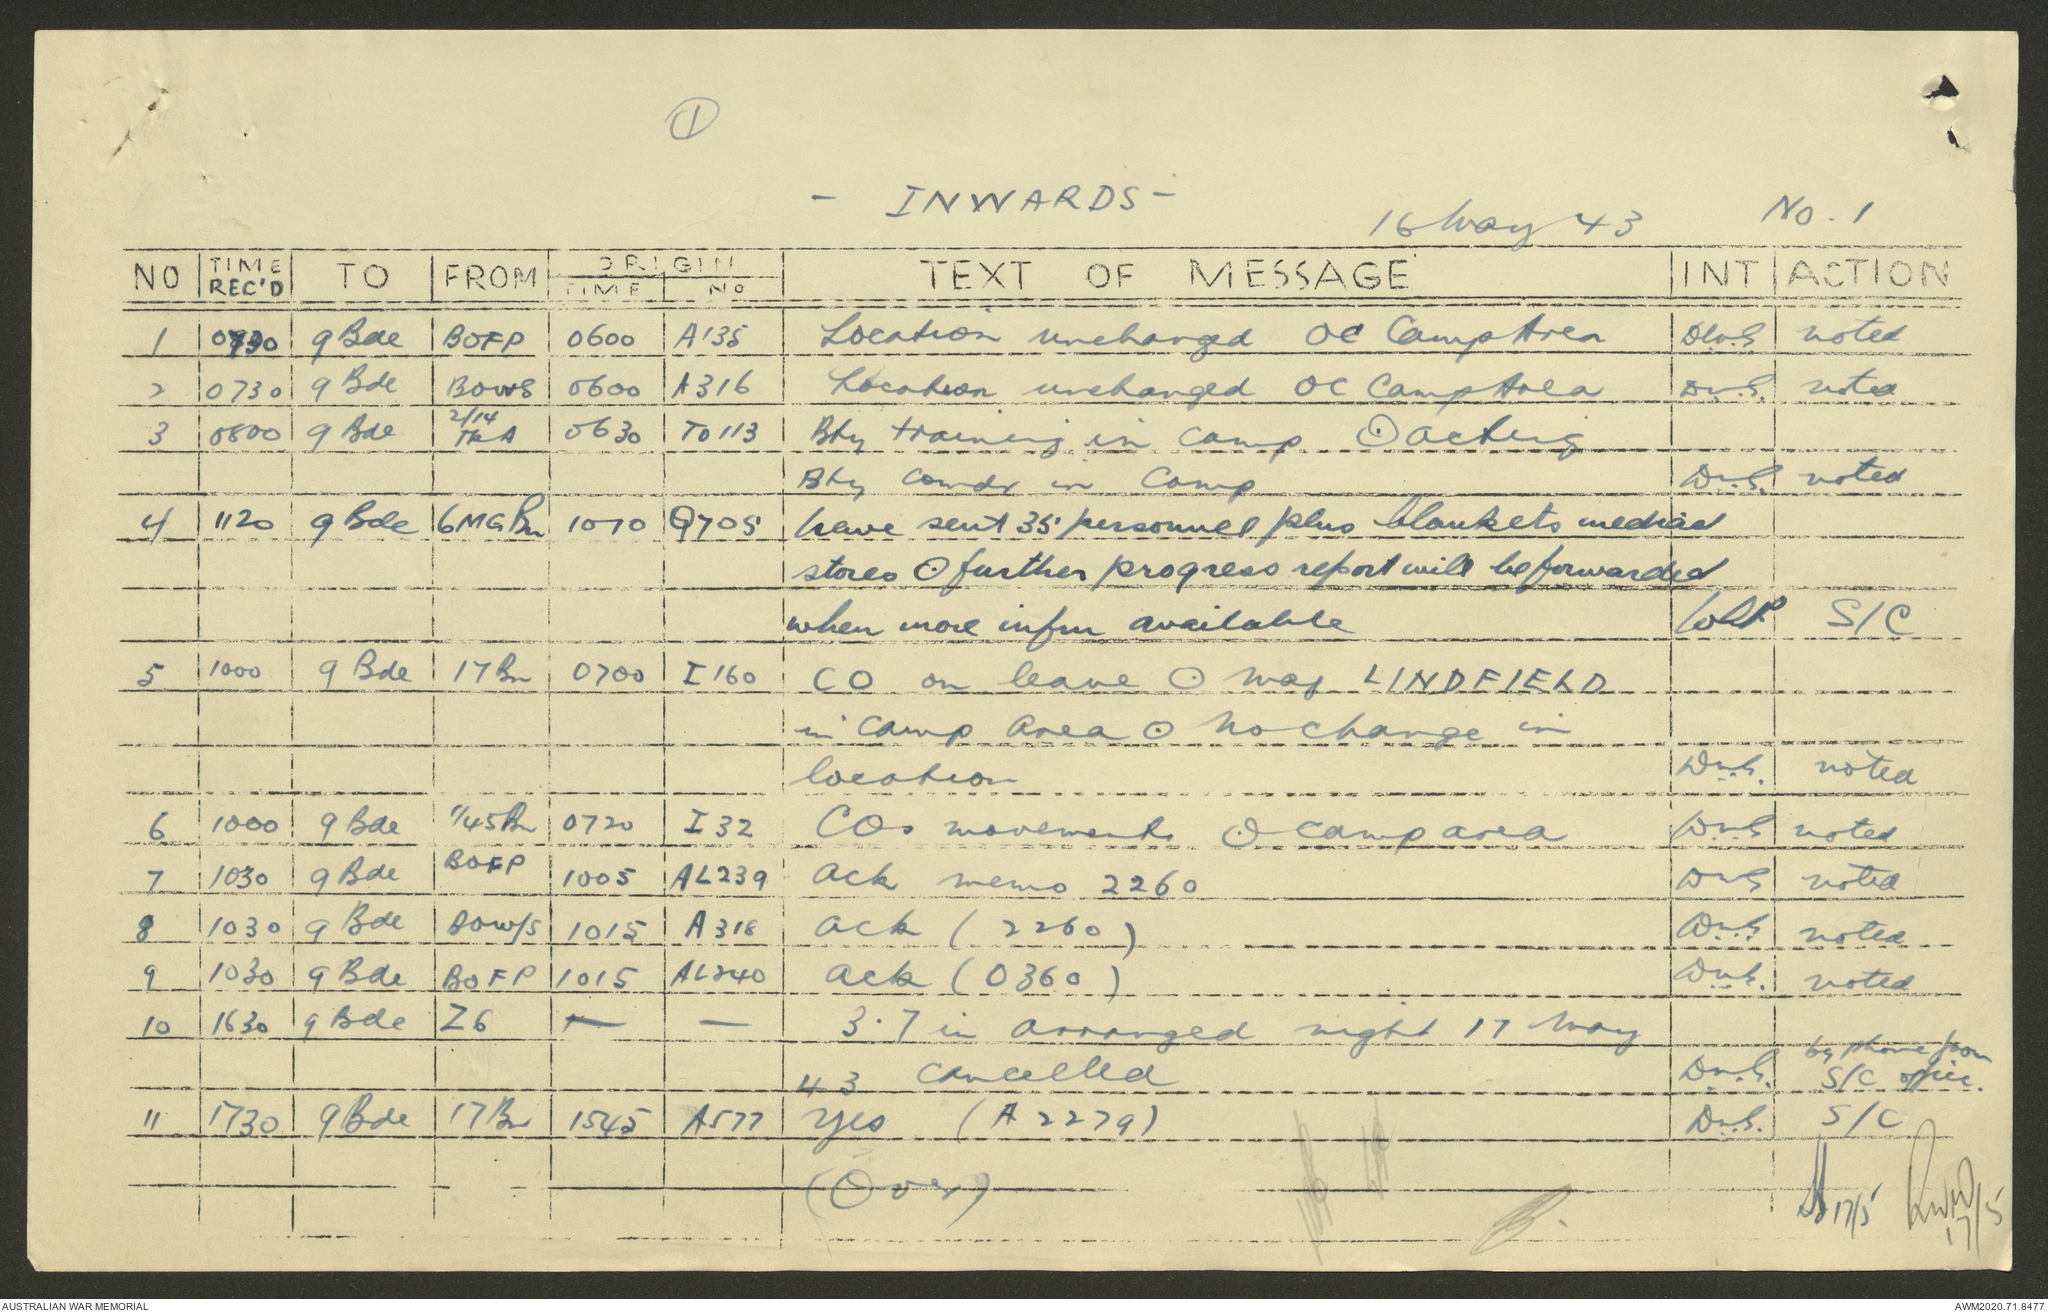 ①
- INWARDS -
16 May 43 No. 1
NO TIME REC'D TO FROM ORIGIN TIME NO TEXT OF MESSAGE INT ACTION
1 0730 9 Bde BOFP 0600 A135 Location unchanged OC Camp Area DWS noted
2 0730 9 Bde BOWS 0600 A316 Location unchanged OC Camp Area D.W.S. noted
3 0800 9 Bde 2/14 0630 TO113 Bty training in camp ⊙ acting
Bty Comdr in Camp D.W.S. noted
4 1120 9 Bde 6MG Bn 1010 Q705 have sent 35 personnel plus blankets medical
stores ⊙ further progress report will be forwarded
when more infm available S/C
5 1000 9 Bde 17 Bn 0700 I160 CO on leave ⊙ Maj LINDFIELD
in camp area ⊙ No change in
location D.W.S. noted
6 1000 9 Bde 1/45 Bn 0720 I32 COs movements ⊙ camp area DWS noted
7 1030 9 Bde BOFP 1005 AL239 ack memo 2260 DWS noted
8 1030 9 Bde BOW/S 1015 A318 ack (2260) D.W.S. noted
9 1030 9 Bde BOFP 1015 AL240 ack (0360) D.W.S. noted
10 1630 9 Bde Z6 — — 3.7 in arranged night 17 May
43 cancelled D.W.S. by phone from S/C office.
11 1730 9 Bde 17 Bn 1545 A577 Yes (A2279) D.W.S. S/C
(Over)
17/5 17/5
AUSTRALIAN WAR MEMORIAL AWM2020.71.8477